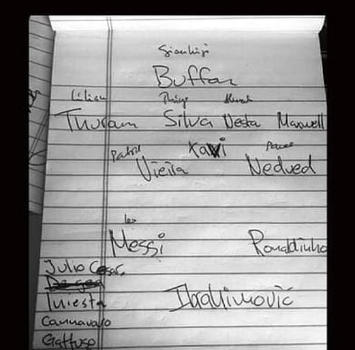 Gianluigi
Buffon
Lilian Thiago
Thuram Silva Nesta Maxwell
Patrick Xavi Pavel
Vieira Nedved
Leo
Messi Ronaldinho
Julio Cesar
De gea
Iniesta Ibrahimović
Cannavaro
Gattuso